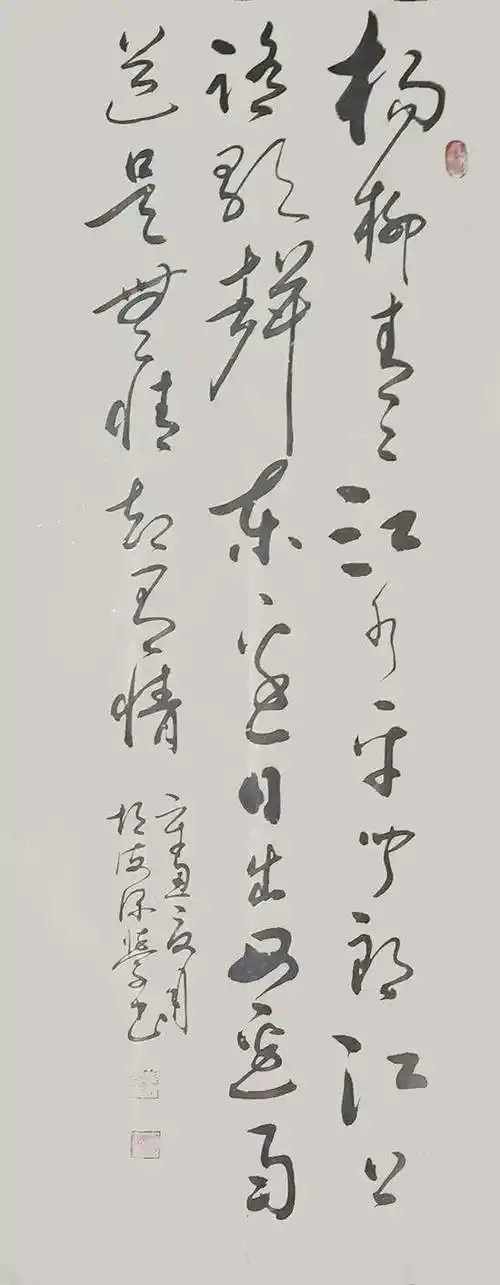 杨柳青青江水平闻郎江上
踏歌聲东边日出西边雨
道是無情却有情
辛丑夏月
书